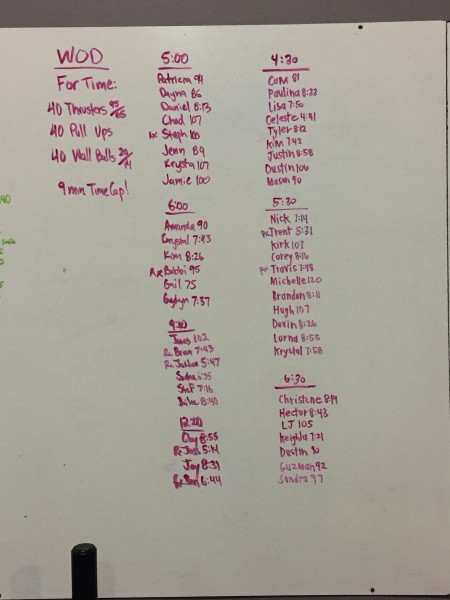 WOD
For Time:
40 Thrusters 95/65
40 Pull Ups
40 Wall Balls 20/14
9 min Time Cap!
5:00
Patricia 94
Dayna 86
Daniel 8:13
Chad 107
Rx Steph 100
Jenn 89
Krysta 107
Jamie 100
6:00
Amanda 90
Crystal 7:43
Kim 8:26
Rx Bobbi 95
Gail 75
7:37
9:30
James 102
Rx Brian 7:43
Rx 5:47
6:35
Stef 7:16
Mike 8:40
12:00
8:55
Rx Jess 5:14
Jay 8:31
Rx Ben 6:44
4:30
81
Paulina 8:33
Lisa 7:50
Celeste 4:41
Tyler 8:12
Kim 7:42
Justin 8:58
Dustin 106
Mason 90
5:30
Nick 7:14
Rx Trent 5:31
Kirk 107
Corey 8:16
Rx Travis 7:48
Michelle 120
Brandon 8:11
Hugh 107
Devin 8:26
Lorna 8:55
Krystal 7:58
6:30
Christine 8:19
Hector 8:43
LJ 105
Keighla 7:21
Dustin 90
Guzman 92
Sandra 97